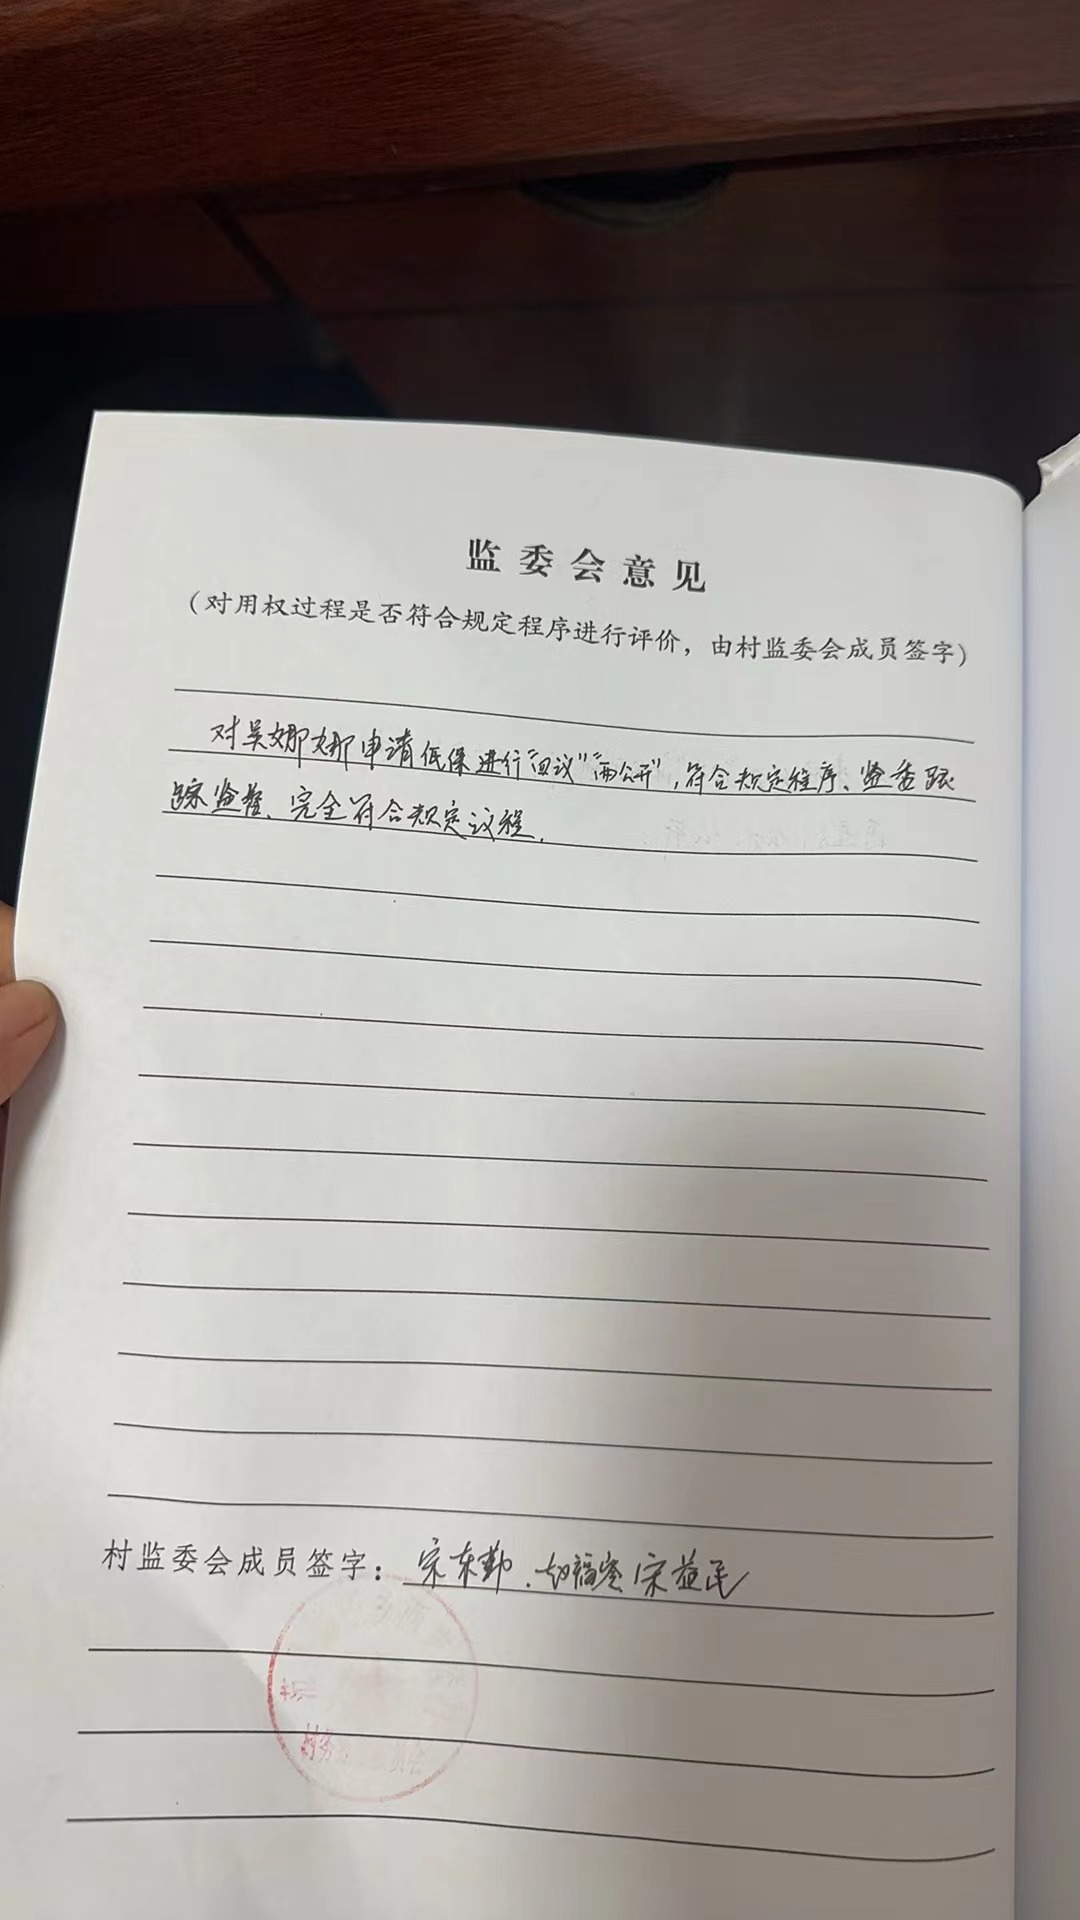 监委会意见
（对用权过程是否符合规定程序进行评价，由村监委会成员签字）
对吴娜娜申请低保进行“四议”“两公开”，符合规定程序、监委跟
踪监督、完全符合规定议程.
村监委会成员签字：宋东勤.赵福奎 宋益民
村务 委员会